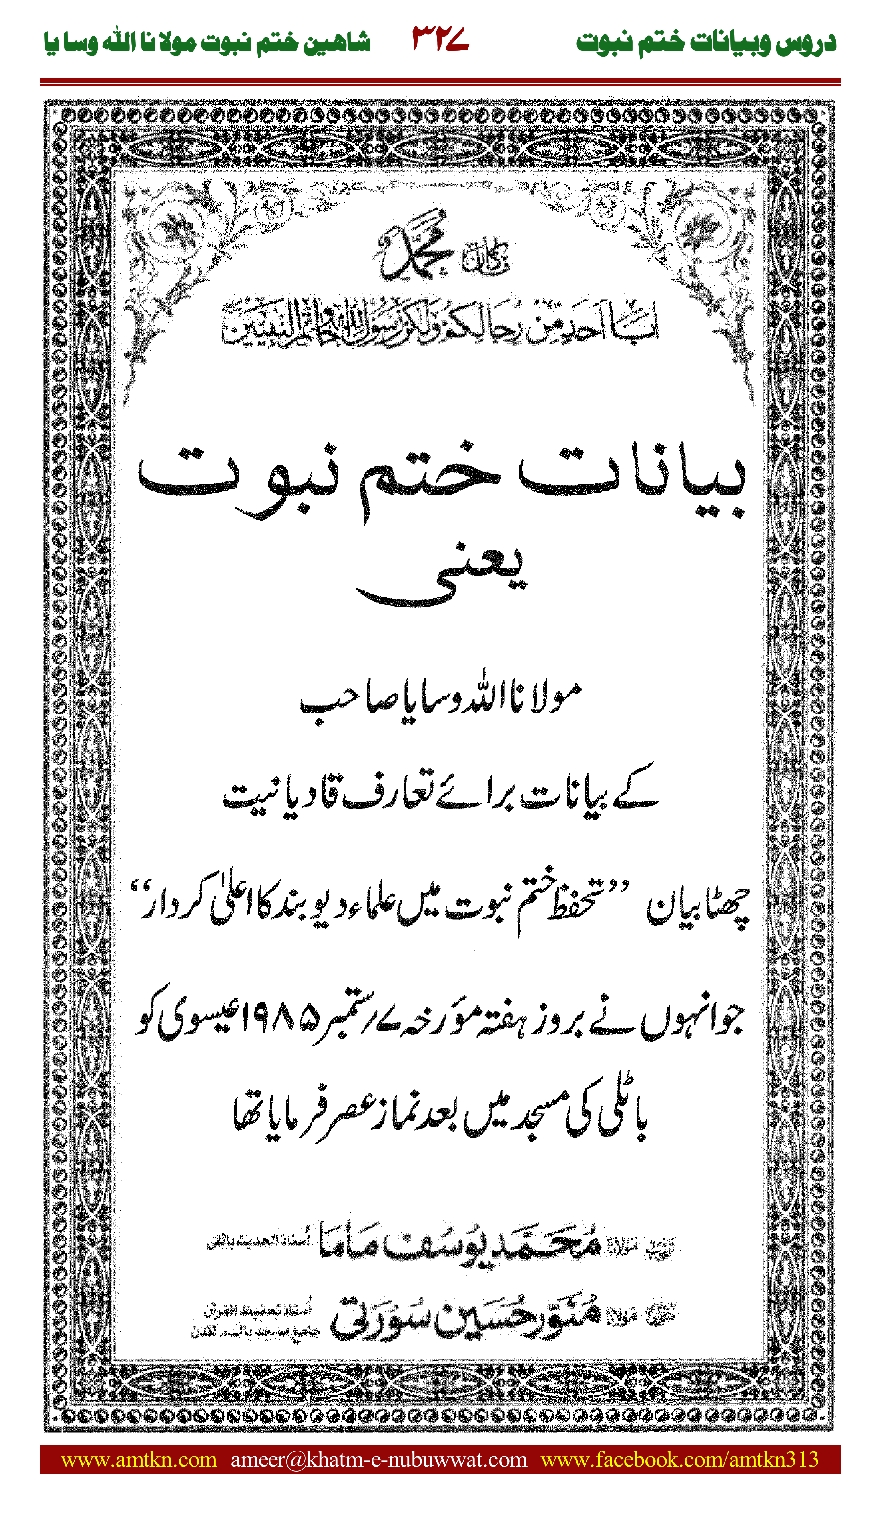 دروس وبیانات ختم نبوت ۳۲۷ شاھین ختم نبوت مولانا اللہ وسایا
ما کان محمد
ابا احد من رجالکم ولکن رسول اللہ وخاتم النبیین
بیانات ختم نبوت
یعنی
مولانا اللہ وسایا صاحب
کے بیانات برائے تعارف قادیانیت
چھٹا بیان ’’تحفظ ختم نبوت میں علماء دیوبند کا اعلیٰ کردار‘‘
جو انہوں نے بروز ہفتہ مؤرخہ ۷؍ستمبر ۱۹۸۵ عیسوی کو
باٹلی کی مسجد میں بعد نماز عصر فرمایا تھا
حضرت مولانا محمد یوسف ماما استاذ الحدیث باٹلی
حضرت مولانا منور حسین سورتی
www.amtkn.com ameer@khatm-e-nubuwwat.com www.facebook.com/amtkn313